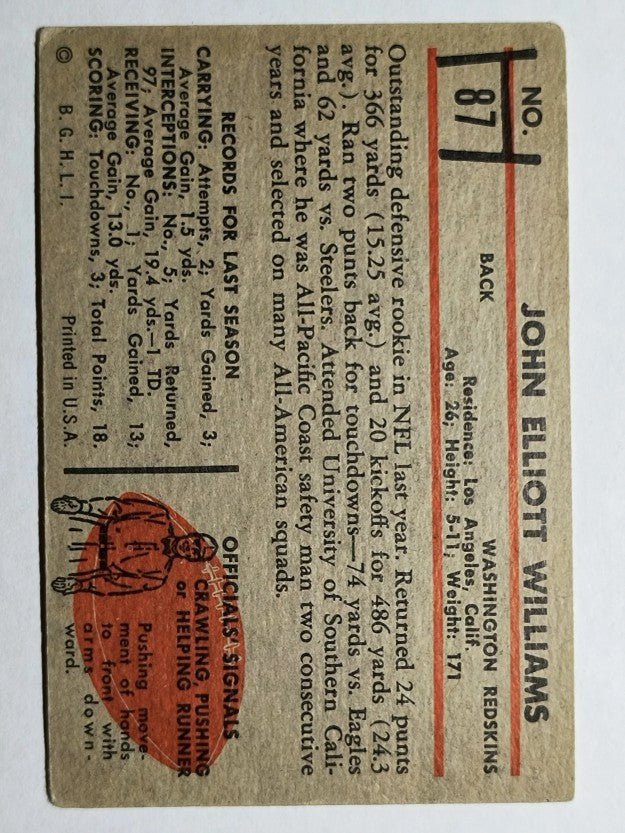 NO.
87
JOHN ELLIOTT WILLIAMS
BACK
WASHINGTON REDSKINS
Residence: Los Angeles, Calif.
Age: 26; Height: 5-11; Weight: 171
Outstanding defensive rookie in NFL last year. Returned 24 punts
for 366 yards (15.25 avg.) and 20 kickoffs for 486 yards (24.3
avg.). Ran two punts back for touchdowns—74 yards vs. Eagles
and 62 yards vs. Steelers. Attended University of Southern Cali-
fornia where he was All-Pacific Coast safety man two consecutive
years and selected on many All-American squads.
RECORDS FOR LAST SEASON
CARRYING: Attempts, 2; Yards Gained, 3;
Average Gain, 1.5 yds.
INTERCEPTIONS: No., 5; Yards Returned,
97; Average Gain, 19.4 yds.—1 TD.
RECEIVING: No., 1; Yards Gained, 13;
Average Gain, 13.0 yds.
SCORING: Touchdowns, 3; Total Points, 18.
© B. G. H. L. I.
Printed in U.S.A.
OFFICIALS' SIGNALS
CRAWLING, PUSHING
or HELPING RUNNER
Pushing move-
ment of hands
to front with
arms down-
ward.